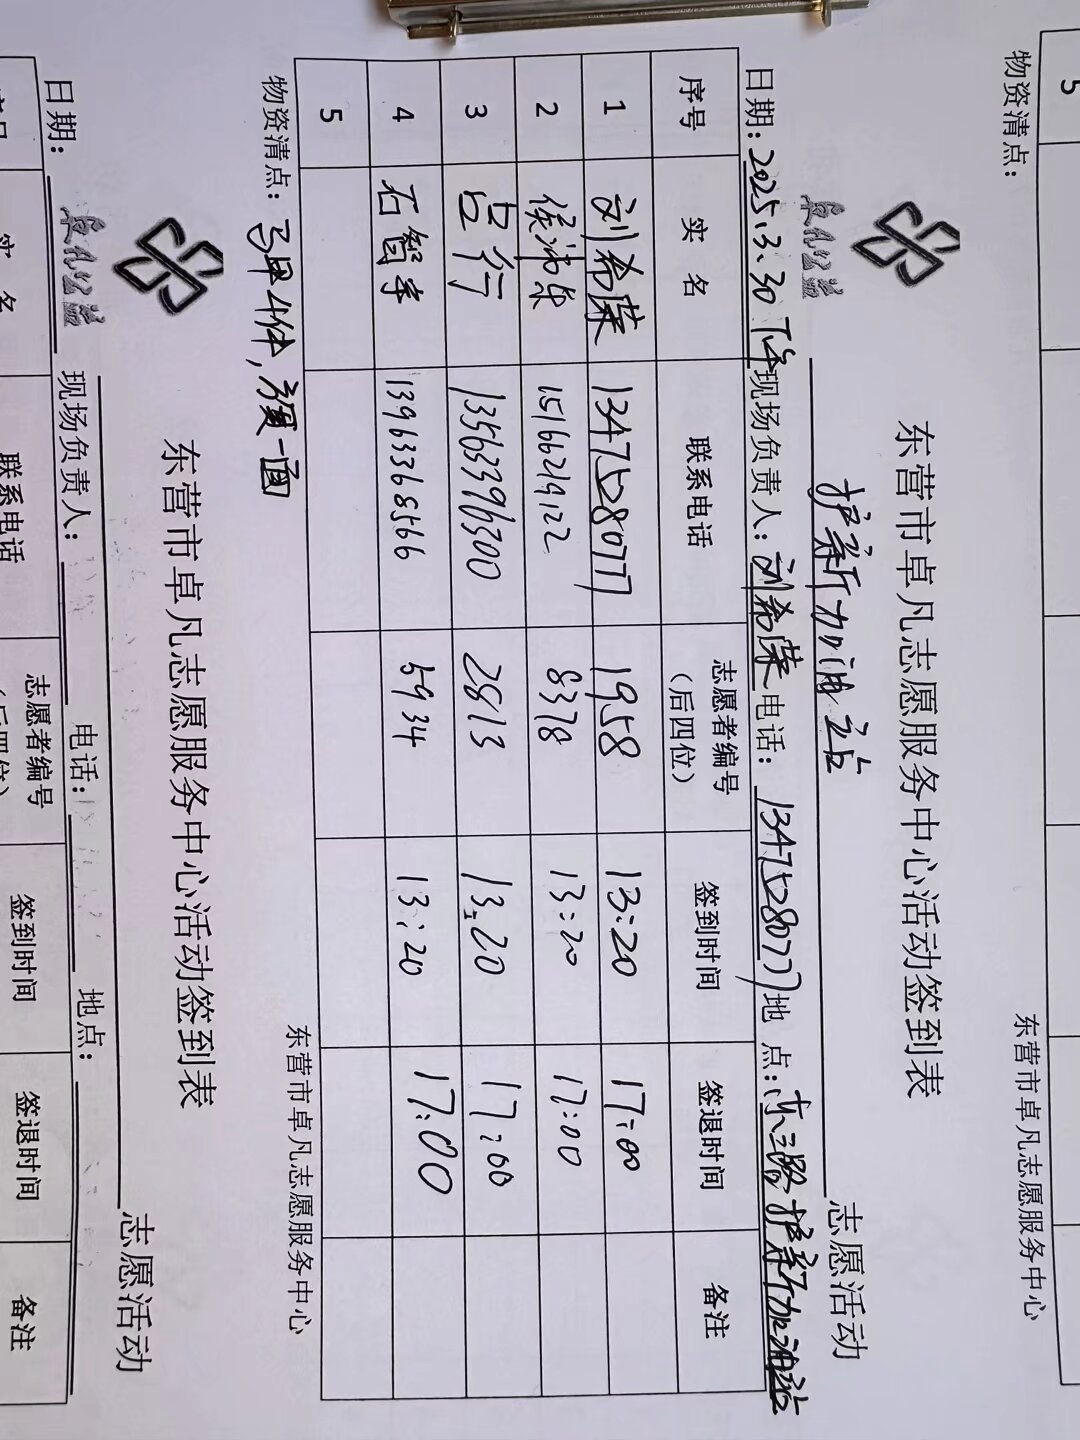 5
物资清点：
东营市卓凡志愿服务中心
卓凡公益
东营市卓凡志愿服务中心活动签到表
护新加油站 志愿活动
日期：2025.3.30 下午 现场负责人：刘希荣 电话：13475280777 地点：东三路护新加油站
序号 实名 联系电话 志愿者编号（后四位） 签到时间 签退时间 备注
1 刘希荣 13475280777 1958 13:20 17:00
2 侯沛东 15166219122 8378 13:20 17:00
3 吕行 13563396300 2813 13:20 17:00
4 石智宇 13963368566 5934 13:20 17:00
5
物资清点：马甲4件，旗一面
东营市卓凡志愿服务中心
卓凡公益
东营市卓凡志愿服务中心活动签到表
志愿活动
日期： 现场负责人： 电话： 地点：
序号 实名 联系电话 志愿者编号（后四位） 签到时间 签退时间 备注